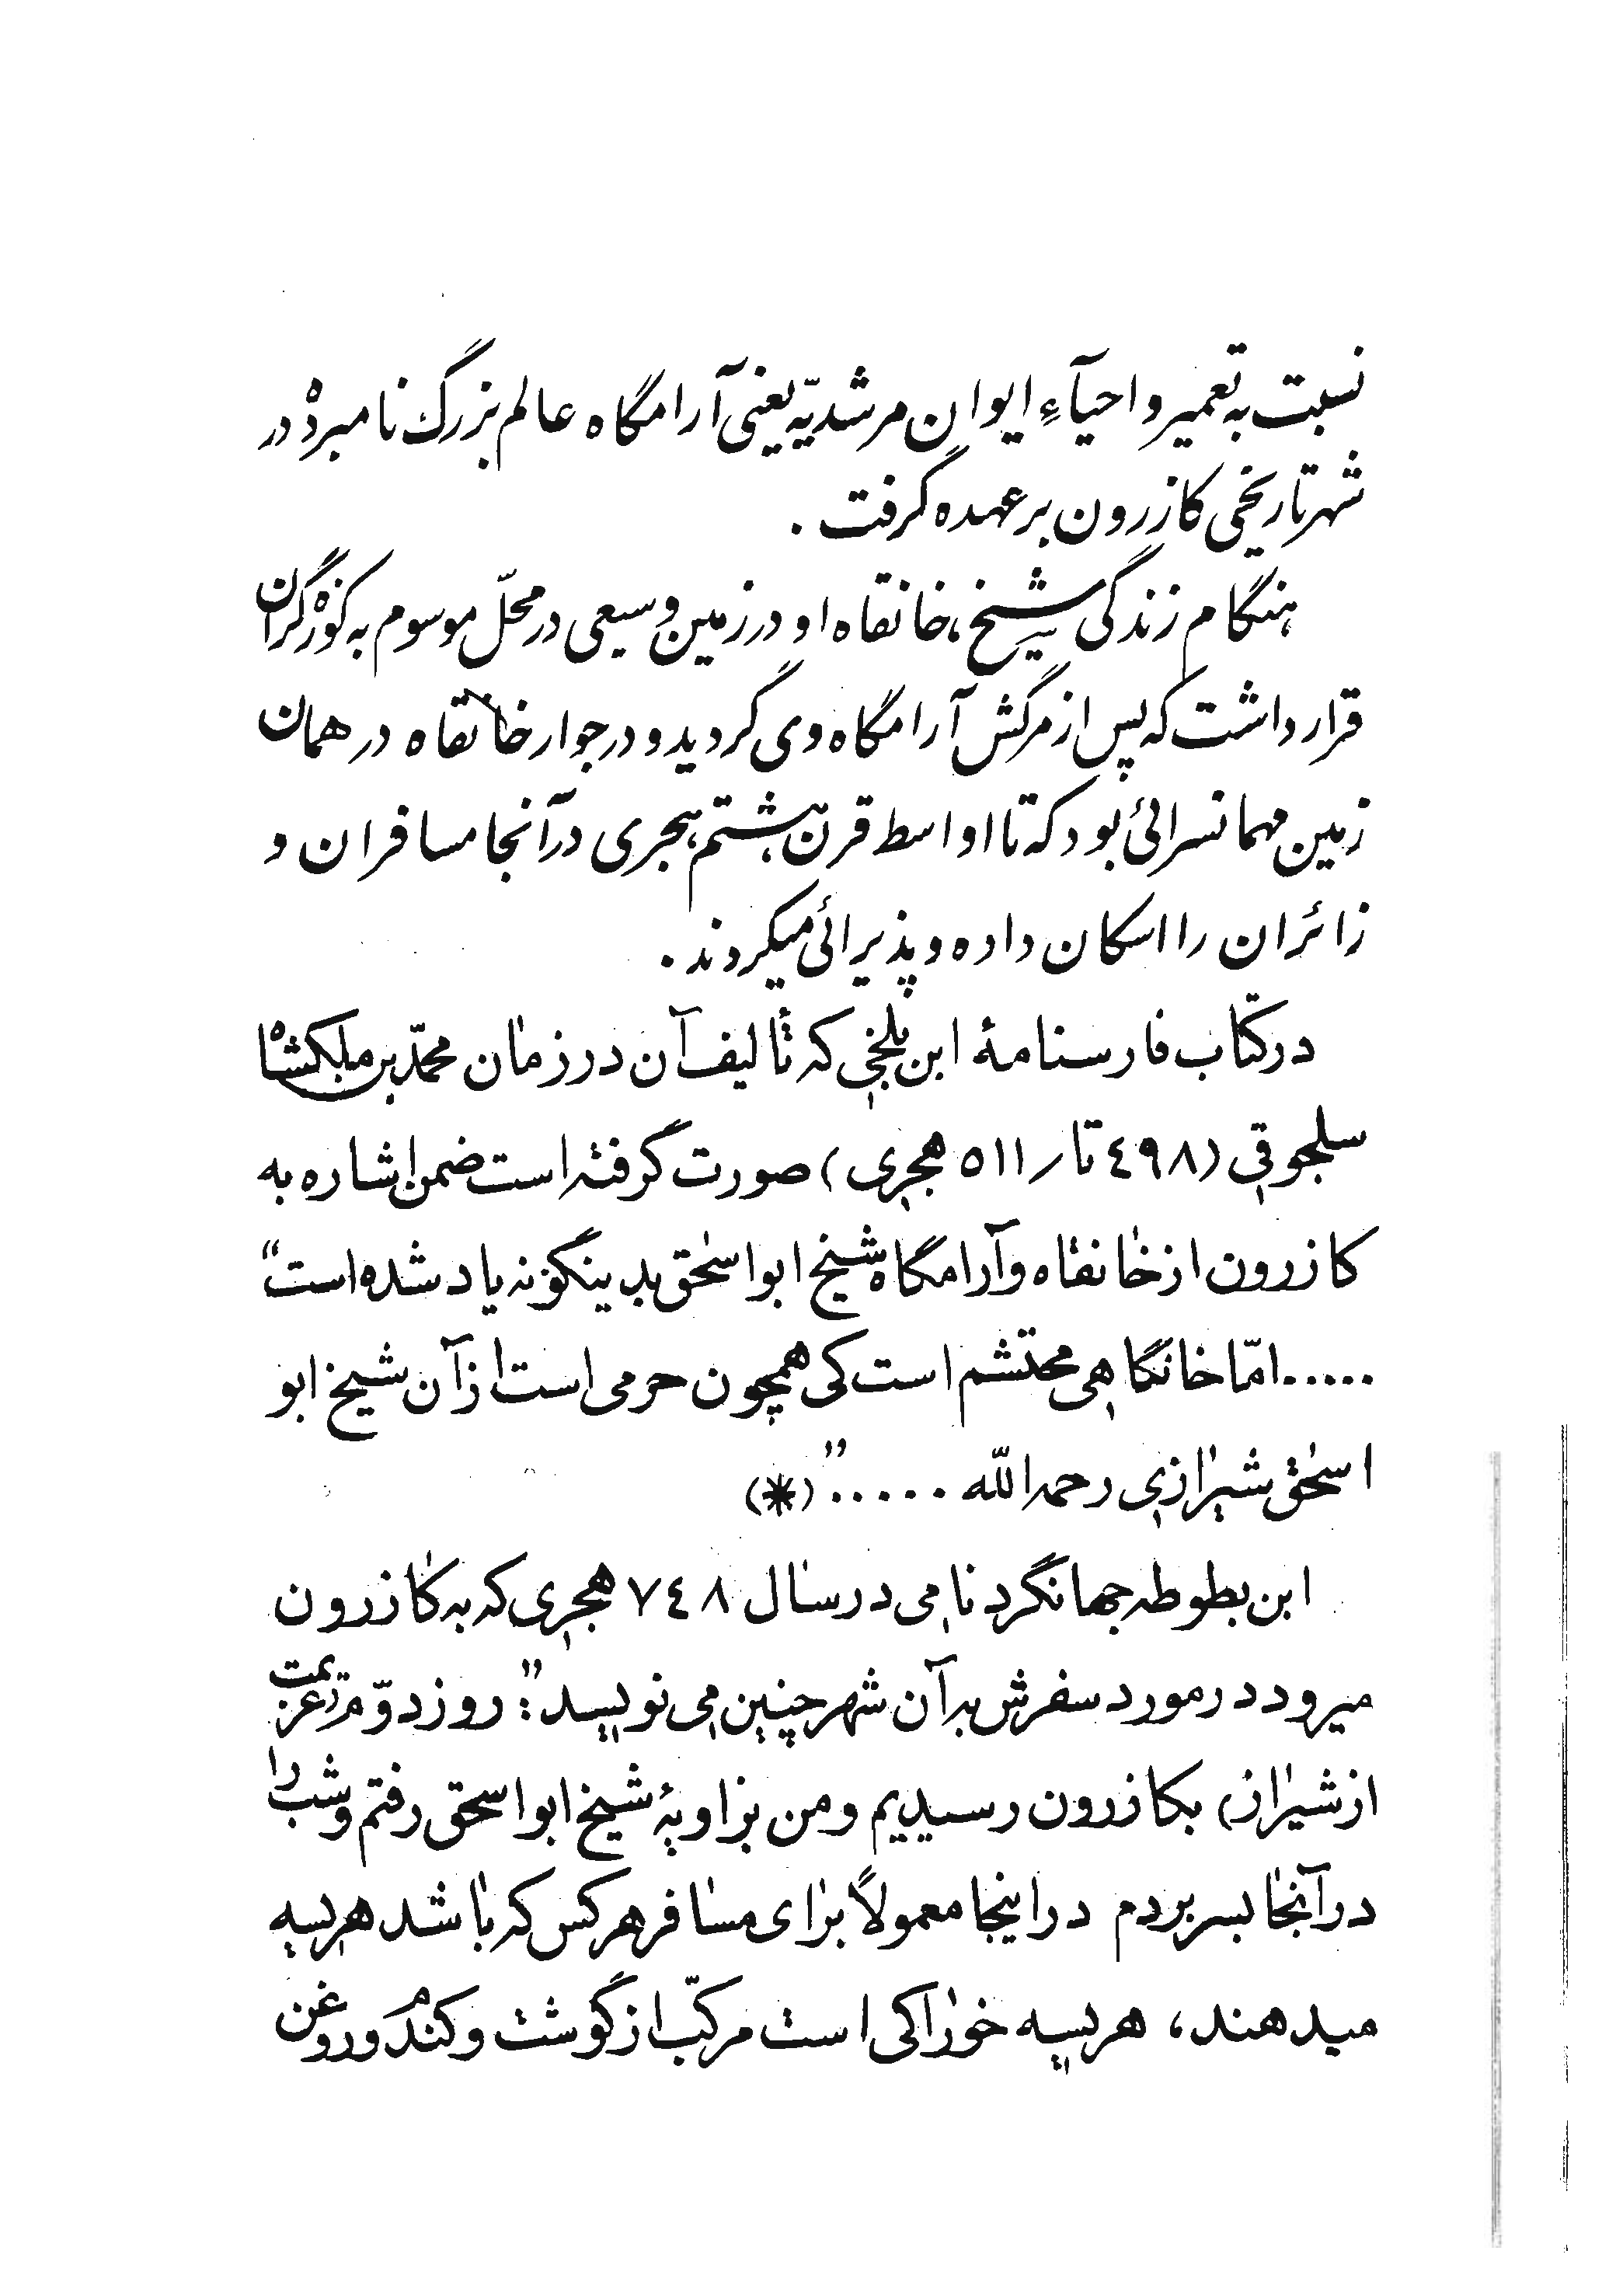 نسبت به تعمیر و احیآءِ ایوان مرشدیّه یعنی آرامگاه عالم بزرگ نامبرده در
شهر تاریخی کازرون بر عهده گرفت .
هنگام زندگی شیخ، خانقاه او در زمین وسیعی در محلّ موسوم به کوزه‌گران
قرار داشت که پس از مرگش آرامگاه وی گردید و در جوار خانقاه در همان
زمین مهمانسرائی بود که تا اواسط قرن هشتم هجری در آنجا مسافران و
زائران را اسکان داده و پذیرائی میکردند .
در کتاب فارسنامهٔ ابن بلخی که تألیف آن در زمان محمّد بن ملکشاه
سلجوقی (٤٩٨ تا ٥١١ هجری) صورت گرفته است ضمن اشاره به
کازرون از خانقاه و آرامگاه شیخ ابواسحٰق بدینگونه یاد شده است "
.....امّا خانگاهی محتشم است کی همچون حرمی است از آن شیخ ابو
اسحٰق شیرازی رحمه الله ....." (*)
ابن بطوطه جهانگرد نامی در سال ٧٤٨ هجری که به کازرون
میرود در مورد سفرش به آن شهر چنین می نویسد": روز دوّم (عزیمت
از شیراز) بکازرون رسیدیم و من بزاویهٔ شیخ ابواسحق رفتم و شب را
در آنجا بسر بردم در اینجا معمولاً برای مسافر هر کس که باشد هریسه
میدهند، هریسه خوراکی است مرکّب از گوشت و گندم و روغن